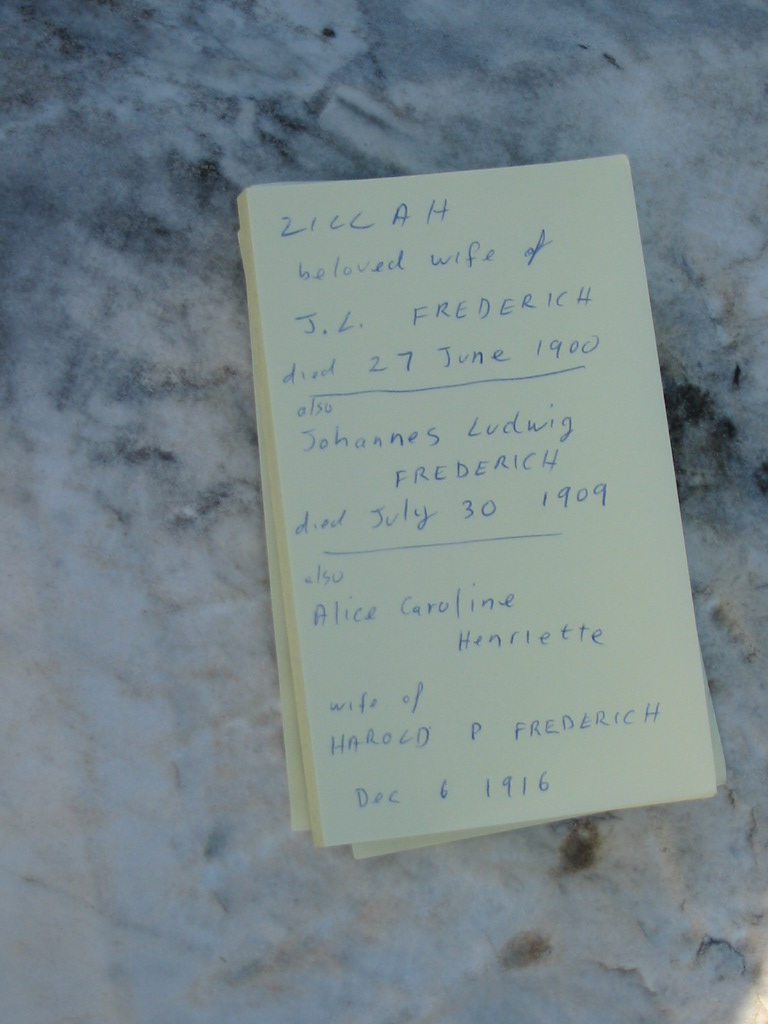 ZILLAH
beloved wife of
J.L. FREDERICH
died 27 June 1900
also
Johannes Ludwig
FREDERICH
died July 30 1909
also
Alice Caroline
Henriette
wife of
HAROLD P FREDERICH
Dec 6 1916